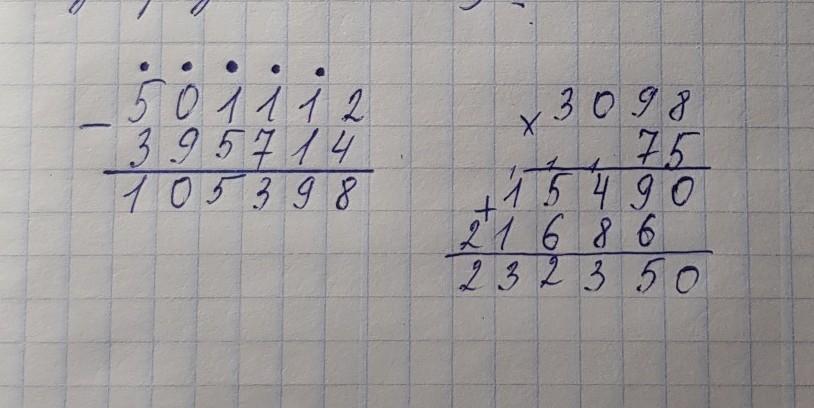 . . . . .
- 501112
395714
105398
x 3098
75
+ 15490
21686
232350